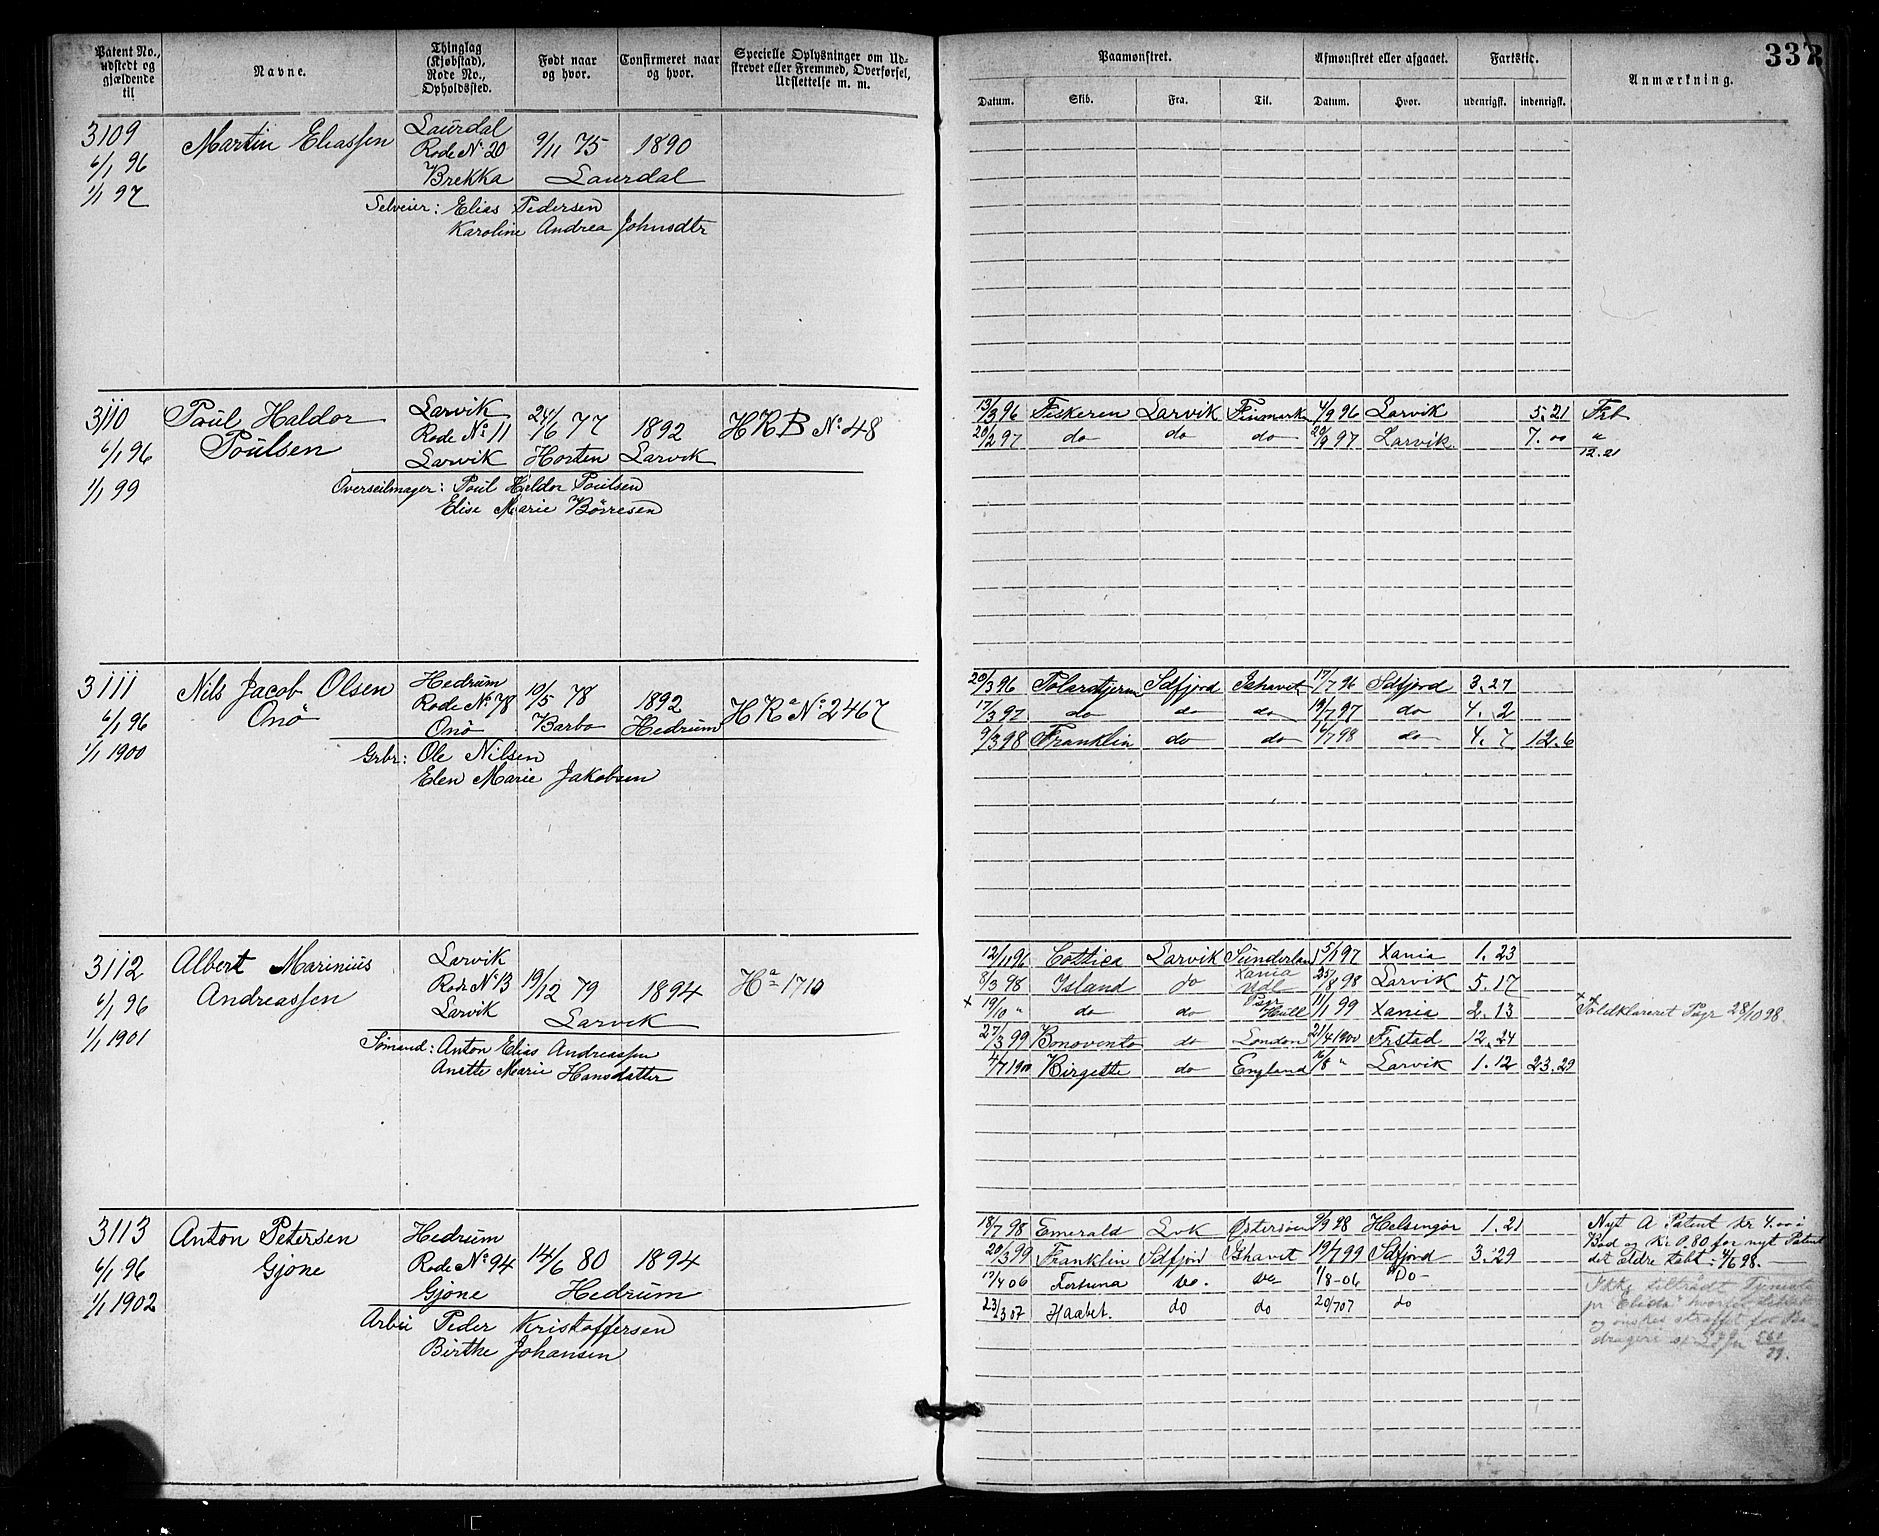 332
Patent No., udstedt og gjældende til
Navne.
Thinglag (Kjøbstad), Rode No., Opholdssted.
Født naar og hvor.
Confirmeret naar og hvor.
Specielle Oplysninger om Udskrevet eller Fremmed, Overførsel, Udslettelse m. m.
Paamønstret.
Afmønstret eller afgaaet.
Fartstid.
Anmærkning.
Datum. Skib. Fra. Til. Datum. Hvor. udenrigsk. indenrigsk.
3109 Martin Eliassen Laurdal
6/1 96 Rode No 20 9/11 75 1890
1/1 97 Brekka Laurdal
Selveier: Elias Pedersen
Karoline Andrea Johnsdtr
3110 Poul Haldor Larvik 24/6 77 1892 H R B No 48
6/1 96 Poulsen Rode No 11
1/1 99 Larvik Horten Larvik
Overseilmager: Poul Haldor Poulsen
Elise Marie Börresen
13/3 96 Fiskeren Larvik Finmarken 4/9 96 Larvik 5.21 Frb
20/2 97 do do do 20/9 97 Larvik 7.00 "
12.21
3111 Nils Jacob Olsen Hedrum 10/5 78 1892 H Ra No 2467
6/1 96 Onö Rode No 78
1/1 1900 Onö Barbo Hedrum
Grbr: Ole Nilsen
Elen Marie Jakobsen
20/3 96 Polarstjernen Sdfjord Ishavet 17/7 96 Sdfjord 3.27
17/3 97 do do do 19/7 97 do 4.2
9/3 98 Franklin do do 16/7 98 do 4.7 12.6
3112 Albert Marinius Larvik
6/1 96 Andreassen Rode No 13 19/12 79 1894 Ha 1710
1/1 1901 Larvik Larvik
Sömand: Anton Elias Andreassen
Anette Marie Hansdatter
12/11 96 Cottica Larvik Sunderland 5/1 97 Xania 1.23
8/3 98 Island do Xania Udl 25/8 98 Larvik 5.17
x 19/10 " do do Pgr Hull 11/1 99 Xania 2.13 Toldklareret Pgr 28/10 98.
27/3 99 Bonovento do London 21/4 1900 Frstad 12.24
4/7 1900 Birgette do England 16/8 " Larvik 1.12 23.29
3113 Anton Petersen Hedrum
6/1 96 Gjöne Rode No 94 14/6 80 1894
1/1 1902 Gjöne Hedrum
Arbei Peder Kristoffersen
Birthe Johansen
18/7 98 Emerald Lvk Östersöen 9/9 98 Helsingör 1.21
20/3 99 Franklin Sdfjord Ishavet 19/7 99 Sdfjord 3.29
17/4 06 Fortuna do. do 1/8-06 Do
23/3 07 Haabet. do do 20/7 07 do
Nyt A Patent kr 4.00 i
Bod og Kr 0,80 for nyt Patent
det ældre tabt. 4/6 98.
Ikke tiltrådt Tjeneste